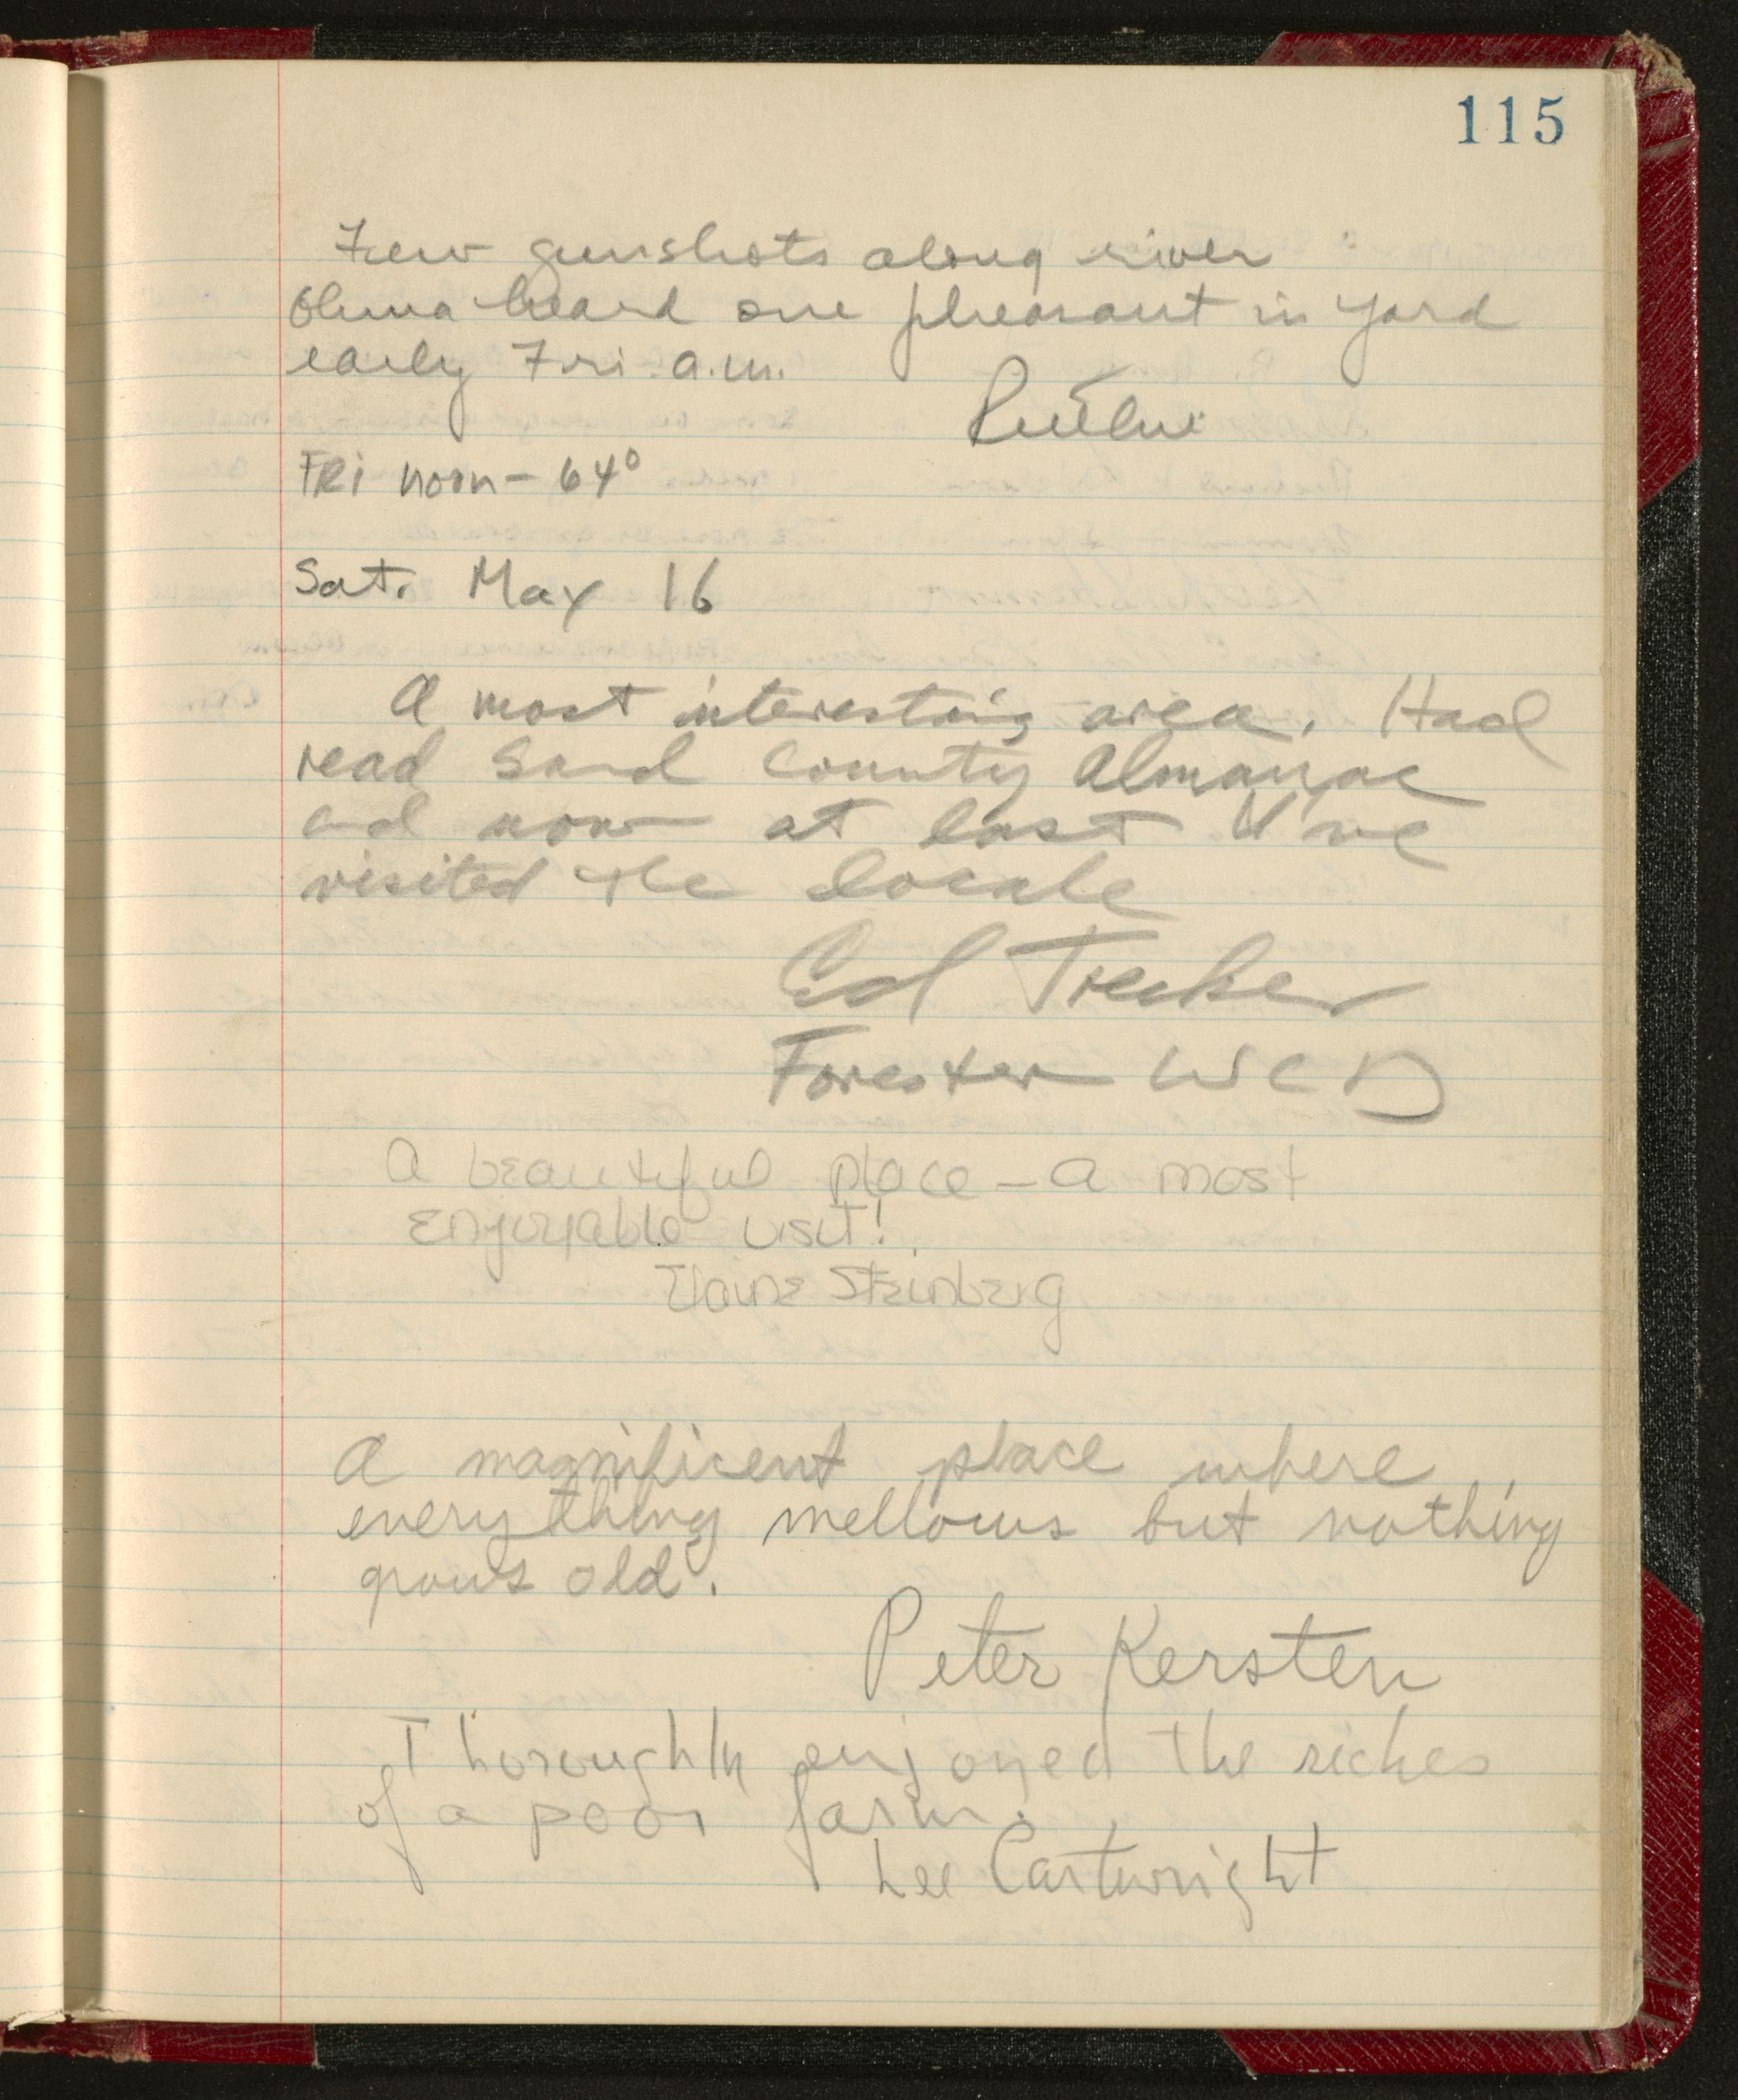 115
Few gunshots along river
heard one pheasant in yard
early Fri. a.m.
Fri noon - 64°
Sat. May 16
A most interesting area. Had
read Sand County Almanac
and now at last I've
visited the locale
Ed Trecker
Forester WCD
A beautiful place - a most
enjoyable visit!
Elaine Steinberg
A magnificent place where
everything mellows but nothing
grows old.
Peter Kersten
Thoroughly enjoyed the riches
of a poor farm.
Lee Cartwright